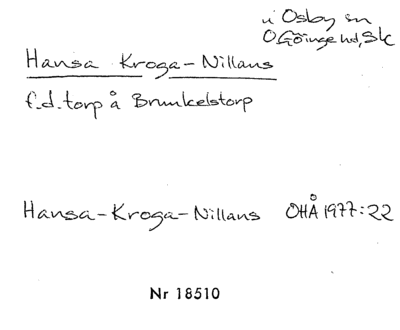 i Osby sn
Ö Göinge hd, Sk
Hansa Kroga-Nillans
f.d. torp å Brunkelstorp
Hansa-Kroga-Nillans OHÅ 1977:22
Nr 18510